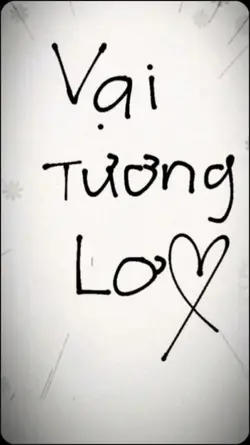 Vại
Tương
Lơ